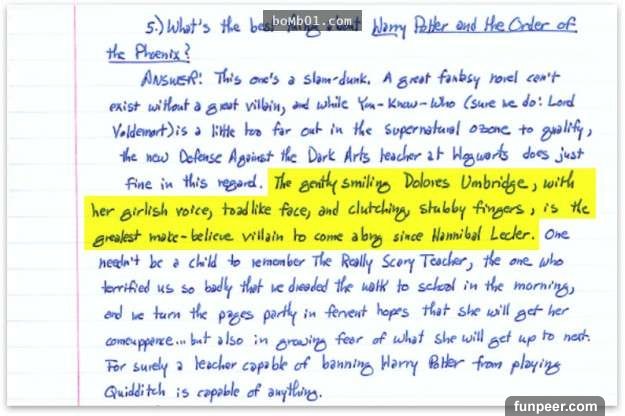 boMb01.com
5.) What's the best thing about Harry Potter and the Order of
the Phoenix?
ANSWER: This one's a slam-dunk. A great fantasy novel can't
exist without a great villain, and while You-Know-Who (sure we do: Lord
Voldemort) is a little too far out in the supernatural ozone to qualify,
the new Defense Against the Dark Arts teacher at Hogwarts does just
fine in this regard. The gently smiling Dolores Umbridge, with
her girlish voice, toadlike face, and clutching, stubby fingers, is the
greatest make-believe villain to come along since Hannibal Lecter. One
needn't be a child to remember The Really Scary Teacher, the one who
terrified us so badly that we dreaded the walk to school in the morning,
and we turn the pages partly in fervent hopes that she will get her
comeuppance... but also in growing fear of what she will get up to next.
For surely a teacher capable of banning Harry Potter from playing
Quidditch is capable of anything.
funpeer.com